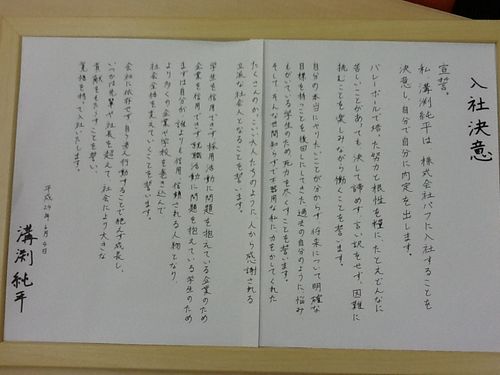 入社決意
宣誓。
私、溝渕純平は、株式会社パフに入社することを
決意し、自分で自分に内定を出します。
バレーボールで培った努力と根性を糧に、たとえどんなに
苦しいことがあっても、決して諦めず、言い訳をせず、困難に
挑むことを楽しみながら働くことを誓います。
自分の本当にやりたいことが分からず、将来について明確な
目標を持つことを後回しにしてきた過去の自分のように悩み
もがいている学生のため死力を尽くすことを誓います。
そして、そんな世間知らずで不器用な私に、力をかしてくれた
たくさんのかっこいい大人たちのように、人から感謝される
立派な社会人となることを誓います。
学生を信用できず採用活動に問題を抱えている企業のため
企業を信用できず就職活動に問題を抱えている学生のため
まずは自分が誰よりも信用、信頼される人物となり、
より多くの企業や学校を巻き込んで
社会全体を変えていくことを誓います。
会社に依存せず自ら考え行動することで絶えず成長し、
いつかは先輩や社長を超えて、社会により大きな
貢献をもたらすことを誓い、
覚悟を持って入社いたします。
平成25年6月4日
溝渕純平